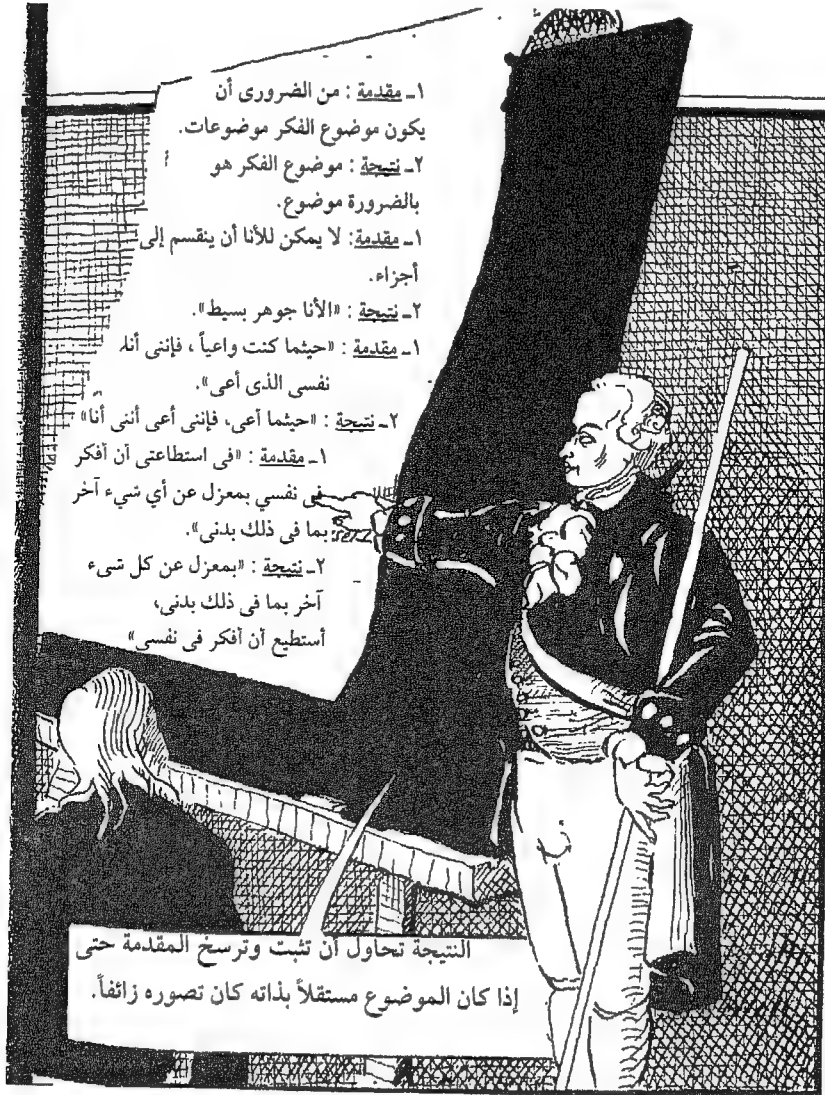 ١ـ مقدمة : من الضرورى أن
يكون موضوع الفكر موضوعات.
٢ـ نتيجة : موضوع الفكر هو
بالضرورة موضوع.
١ـ مقدمة : لا يمكن للأنا أن ينقسم إلى
أجزاء.
٢ـ نتيجة : «الأنا جوهر بسيط».
١ـ مقدمة : «حيثما كنت واعياً ، فإننى أنا
نفسى الذى أعى».
٢ـ نتيجة : «حيثما أعى، فإننى أعى أننى أنا»
١ـ مقدمة : «فى استطاعتى أن أفكر
فى نفسي بمعزل عن أي شيء آخر
بما فى ذلك بدنى».
٢ـ نتيجة : «بمعزل عن كل شىء
آخر بما فى ذلك بدنى،
أستطيع أن أفكر فى نفسى»
النتيجة تحاول أن تثبت وترسخ المقدمة حتى
إذا كان الموضوع مستقلاً بذاته كان تصوره زائفاً.